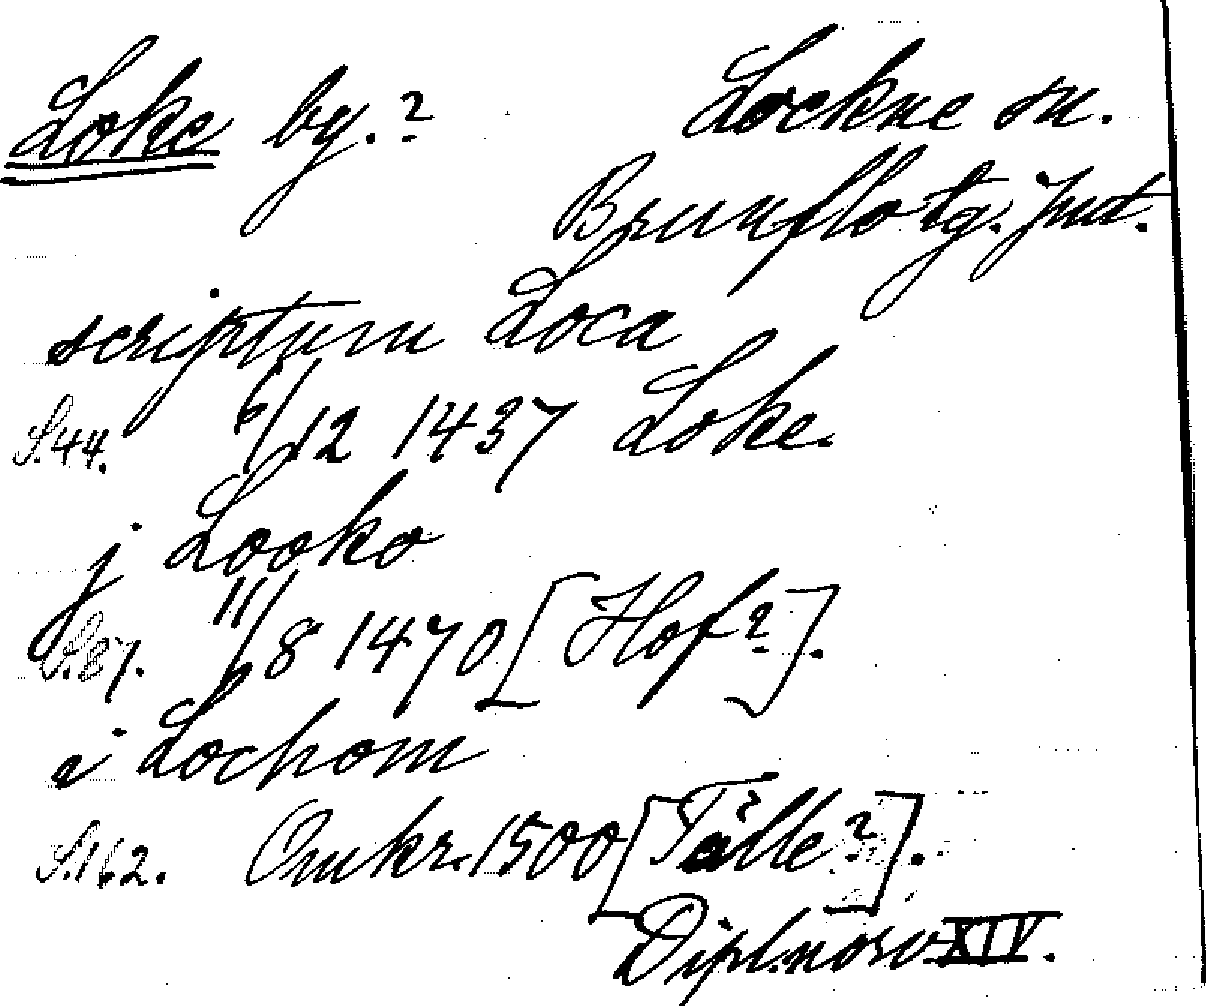 Loke by.? Lockne sn.
Brunflo tg. Jmt.
scriptum Loca
S.44. 6/12 1437 Loke.
j Looko
S.87. 11/8 1470 [Hof?].
i Lochom
S.162. Omkr. 1500 [Tälle?].
Dipl. norv. XIV.